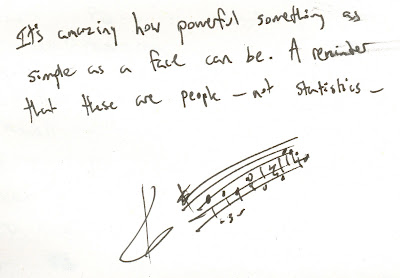 It's amazing how powerful something as
simple as a face can be. A reminder
that these are people – not statistics –
-3-